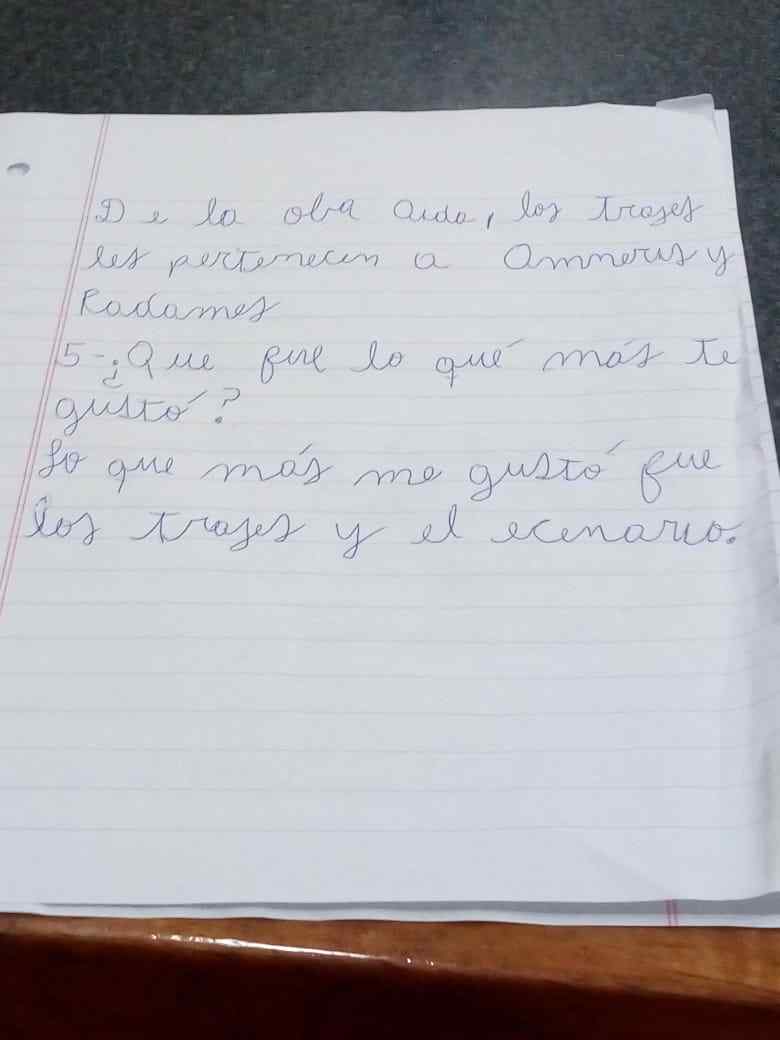 De la oba Aida, los trajes
les pertenecen a Amneris y
Radames
5-¿Que fue lo qué más te
gustó?
Lo que más me gustó fue
los trajes y el ecenario.